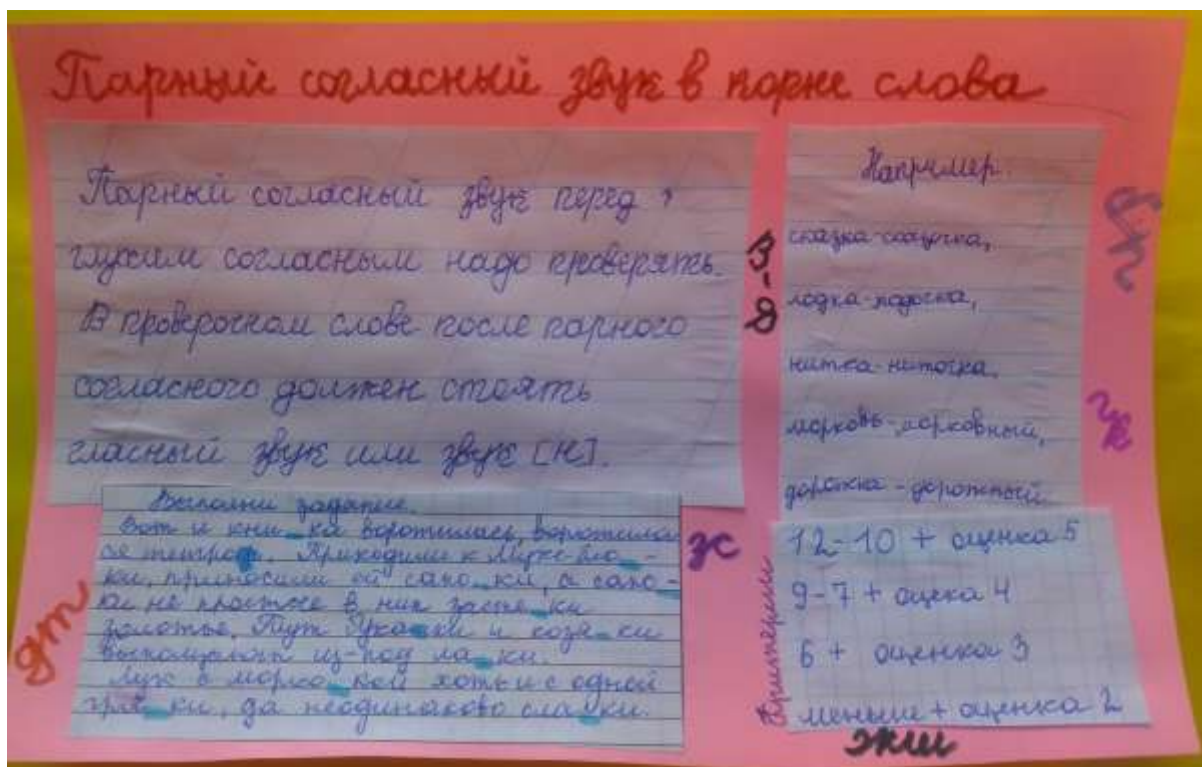 Парный согласный звук в корне слова
Парный согласный звук перед
глухим согласным надо проверять.
В проверочном слове после парного
согласного должен стоять
гласный звук или звук [н].
Например.
сказка-сказочка,
лодка-лодочка,
нитка-ниточка,
морковь-морковный,
дорожка-дорожный
бп
в-ф
гк
дт
зс
жш
Выполни задание.
Вот и кни_ка воротилась, воротила
ся тетра_. Приходили к Мухе бло_-
ки, приносили ей сапо_ки, а сапо_-
ки не простые в них засте_ки
золотые. Тут бука_ки и козя_ки
из-под ла_ки.
Лук с морко_кой хоть и с одной
гря_ки, да неодинаково сла_ки.
Критерии
12-10 + оценка 5
9-7 + оцека 4
6 + оценка 3
меньше + оценка 2